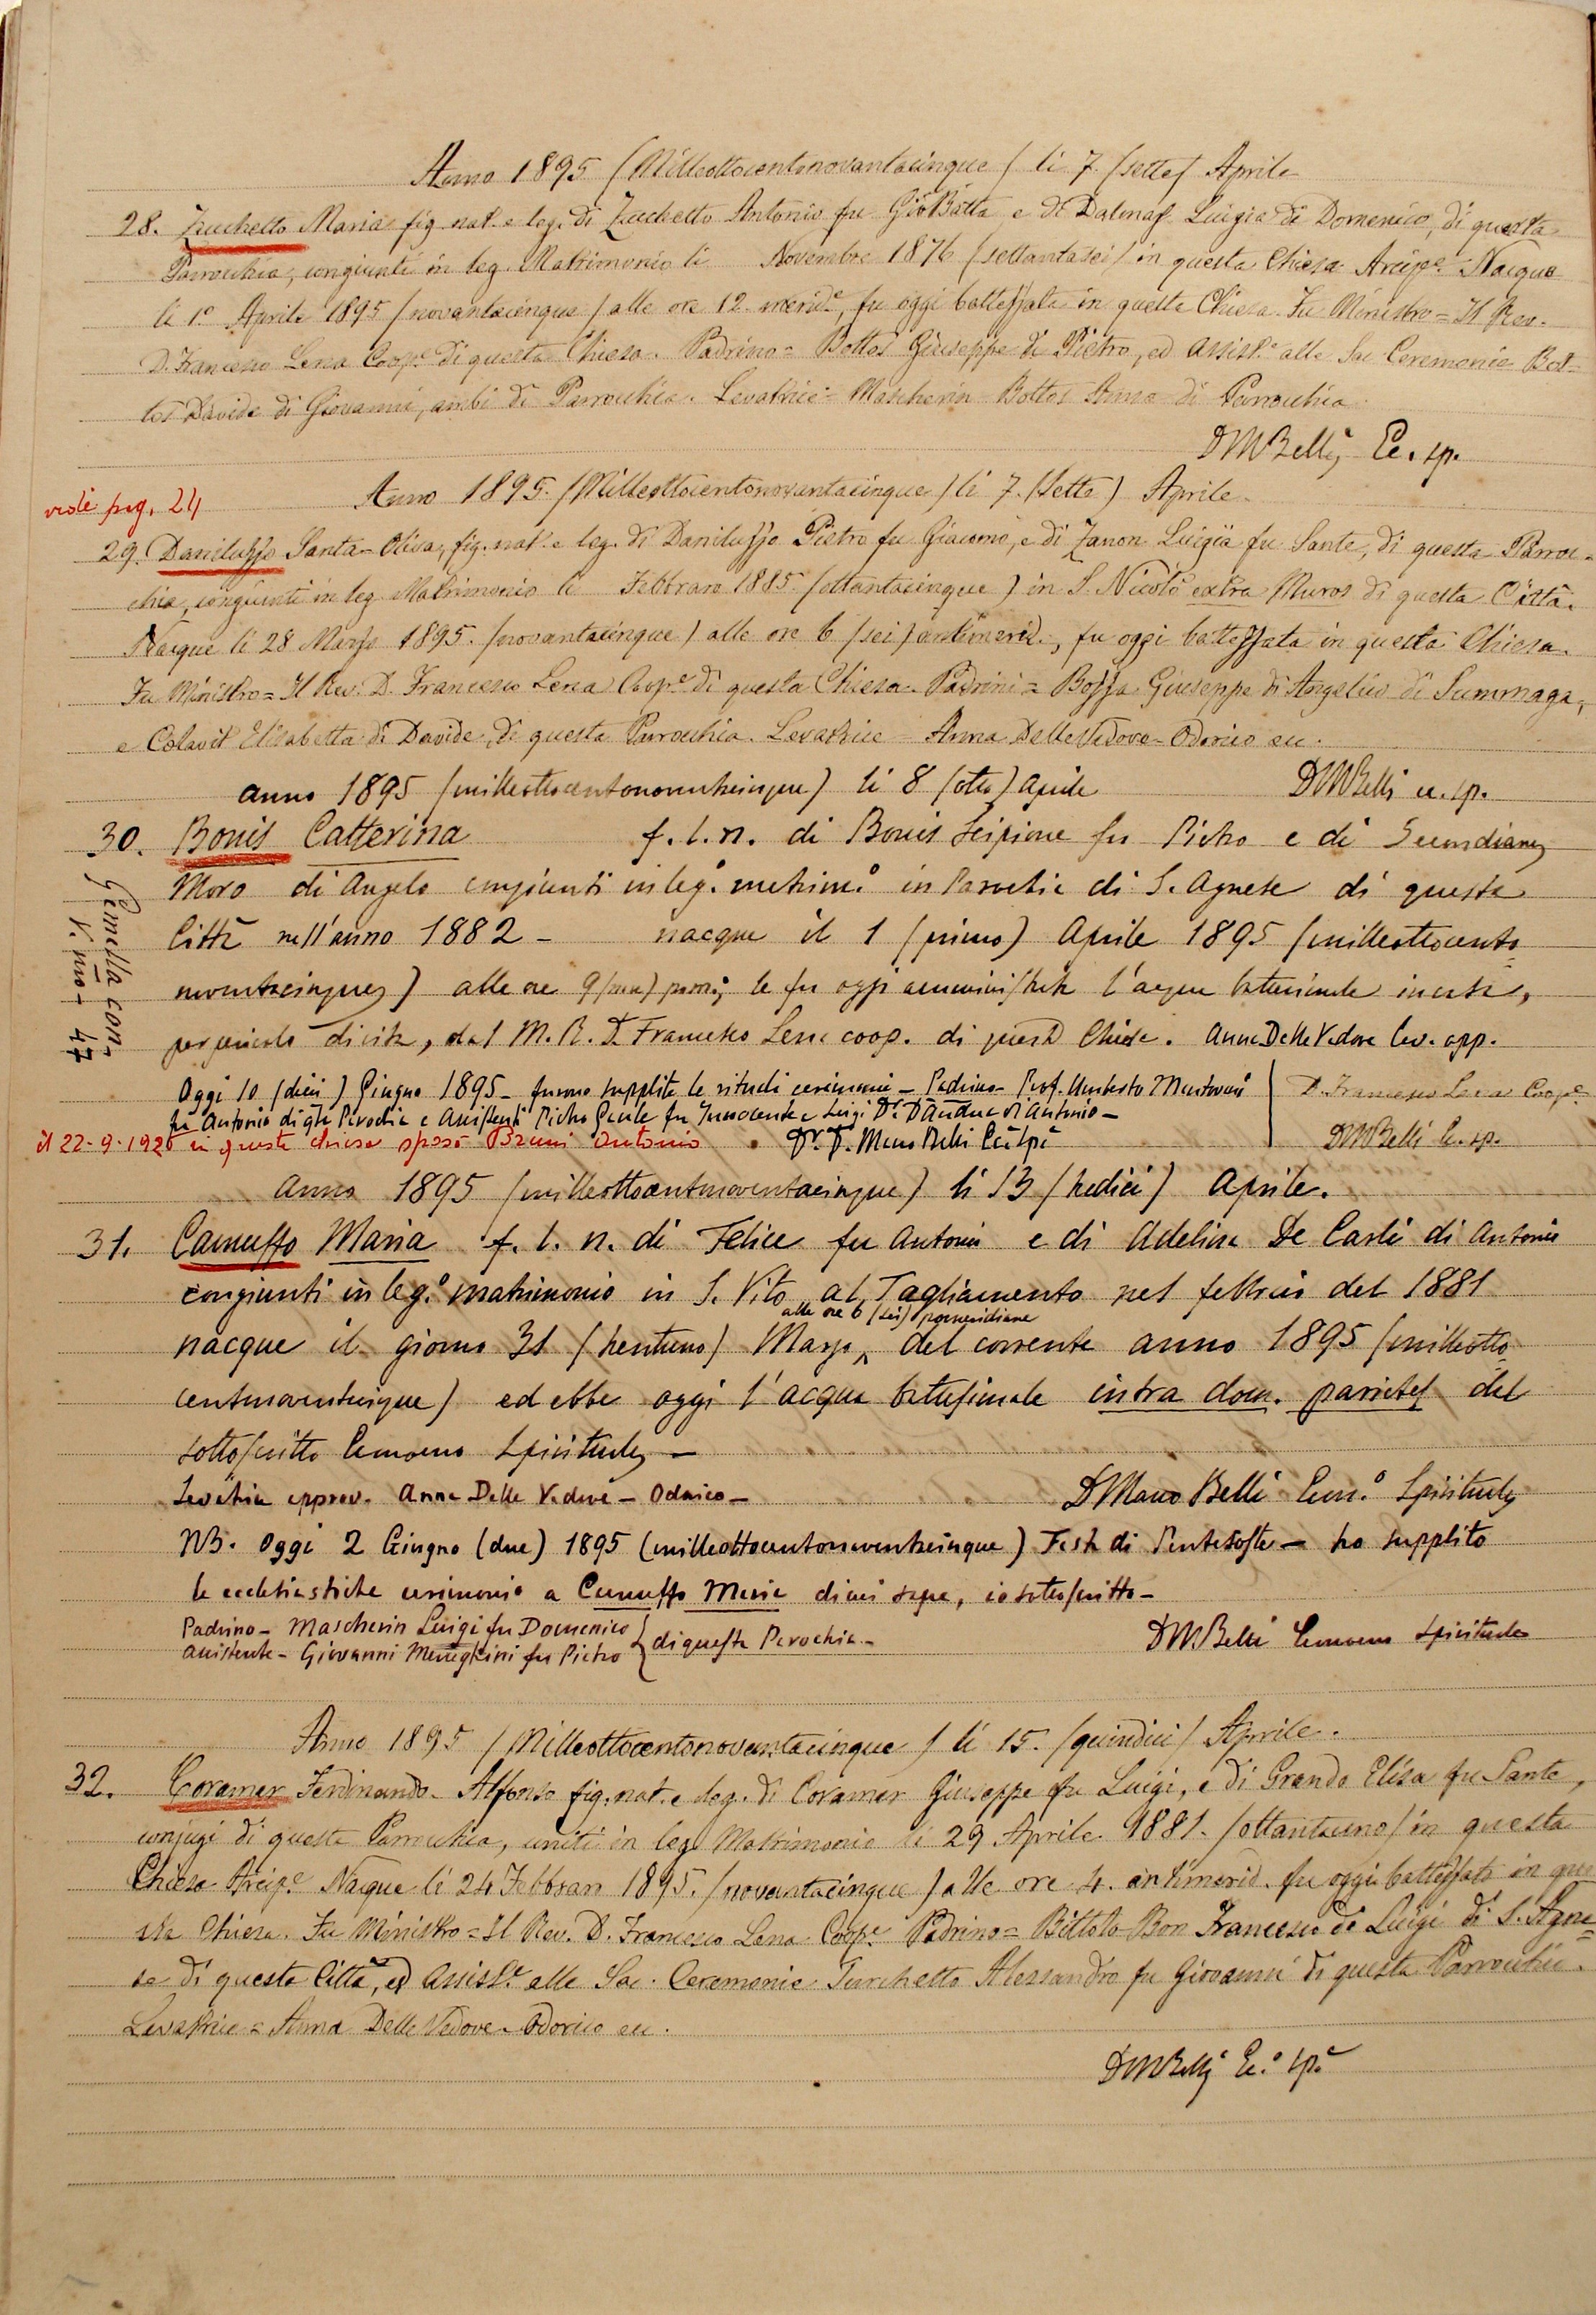 Anno 1895 / Milleottocentonovantacinque / li 7 /sette/ Aprile
28. Zucchetto Maria fig. nat. e leg. di Zucchetto Antonio fu Gio Batta e di Dalmas Luigia di Domenico, di questa
Parrocchia, congiunti in leg. Matrimonio li Novembre 1876 /settantasei/ in questa Chiesa Arcip.e Nacque
li 1.o Aprile 1895 /novantacinque/ alle ore 12 merid.e, fu oggi battezzata in questa Chiesa. Fu Ministro = Il Rev.
D. Francesco Lena Coop.e di questa Chiesa. Padrino = Bottos Giuseppe di Pietro, ed assist.e alle Sac. Ceremonie Bot=
tos Davide di Giovanni, ambi di Parrocchia. Levatrice = Mascherin Bottos Anna di Parrocchia
DMBelli Ec. sp.
vide pag. 24
Anno 1895. /Milleottocentonovantacinque/ li 7. /Sette) Aprile.
29. Daniluzzo Santa-Elisa, fig. nat. e leg. di Daniluzzo Pietro fu Giacomo, e di Zanon Luigia fu Sante, di questa Parroc=
chia, congiunti in leg. Matrimonio li Febbraro 1885 /ottantacinque) in S. Nicolò extra Muros di questa Città.
Nacque li 28 Marzo 1895. /novantacinque) alle ore 6 /sei) antimerid., fu oggi battezzata in questa Chiesa.
Fu Ministro = Il Rev. D. Francesco Lena Coop.e di questa Chiesa. Padrini = Bozza Giuseppe di Angelico di Summaga,
e Colavit Elisabetta di Davide, di questa Parrocchia. Levatrice Anna Delle Vedove-Odorico ec.
anno 1895 /milleottocentonovantacinque) li 8 /otto) aprile DMBelli ec. sp.
30. Bonis Catterina f. l. n. di Bonis Scipione fu Pietro e di Secondiana
Moro di Angelo congiunti in leg.o matrim.o in Parochia di S. Agnese di questa
Città nell'anno 1882 - nacque il 1 (primo) Aprile 1895 /milleottocento
novantacinque) alle ore 9 (nove) pom.; le fu oggi amministrata l'acqua battesimale in casa,
per pericolo di vita, dal M. R. D. Francesco Lena coop. di questa Chiesa. Anna Delle Vedove lev. app.
Gemella con-
V. no - 47
Oggi 10 (dieci) Giugno 1895 - furono supplite le rituali cerimonie - Padrino - Prof. Umberto Mantovani
fu Antonio di qta Parochia e assistenti Pietro Gaule fu Innocente e Luigi Dr. D'Andrea di Antonio -
D. Francesco Lena Coop.e
il 22-9-1920 in questa chiesa sposò Bruni Antonio Dr. D. Marco Belli Ec. Sp.
DMBelli Ec. sp.
Anno 1895 /milleottocentonovantacinque) li 13 /tredici) Aprile.
31. Camuffo Maria f. l. n. di Felice fu Antonio e di Adelina De Carli di Antonio
congiunti in leg.o matrimonio in S. Vito al Tagliamento nel febbraio del 1881
alle ore 6 (sei) pomeridiane
nacque il giorno 31 /trentuno/ Marzo, del corrente anno 1895 /milleotto
centonovantacinque) ed ebbe oggi l'acqua battesimale intra dom. parietes dal
sottoscritto Economo Spirituale -
Levatrice approv. Anna Delle Vedove - Odorico - DMarco Belli Econ.o Spirituale
NB. Oggi 2 Giugno (due) 1895 (milleottocentonovantacinque) Festa di Pentecoste - ho supplito
le ecclesiastiche cerimonie a Camuffo Maria di cui sopra, io sottoscritto -
Padrino - Mascherin Luigi fu Domenico
assistente - Giovanni Meneghini fu Pietro } di questa Parochia -
DMBelli Economo Spirituale
Anno 1895 / Milleottocentonovantacinque / li 15. /quindici/ Aprile.
32. Coramer Ferdinando-Alfonso fig. nat. e leg. di Coramer Giuseppe fu Luigi, e di Grando Elisa fu Sante,
conjugi di questa Parrocchia, uniti in leg.o Matrimonio li 29 Aprile 1881. /ottantauno/ in questa
Chiesa Arcip.e Nacque li 24 Febbraro 1895. /novantacinque) alle ore 4. antimerid. fu oggi battezzato in que
sta Chiesa. Fu Ministro = Il Rev. D. Francesco Lena Coop.e Padrino = Bittolo Bon Francesco di Luigi di S. Agne=
se di questa Città, ed assist.e alle Sac. Ceremonie Turchetto Alessandro fu Giovanni di questa Parrocchia.
Levatrice = Anna Delle Vedove-Odorico ec.
DMBelli Ec.o sp.e